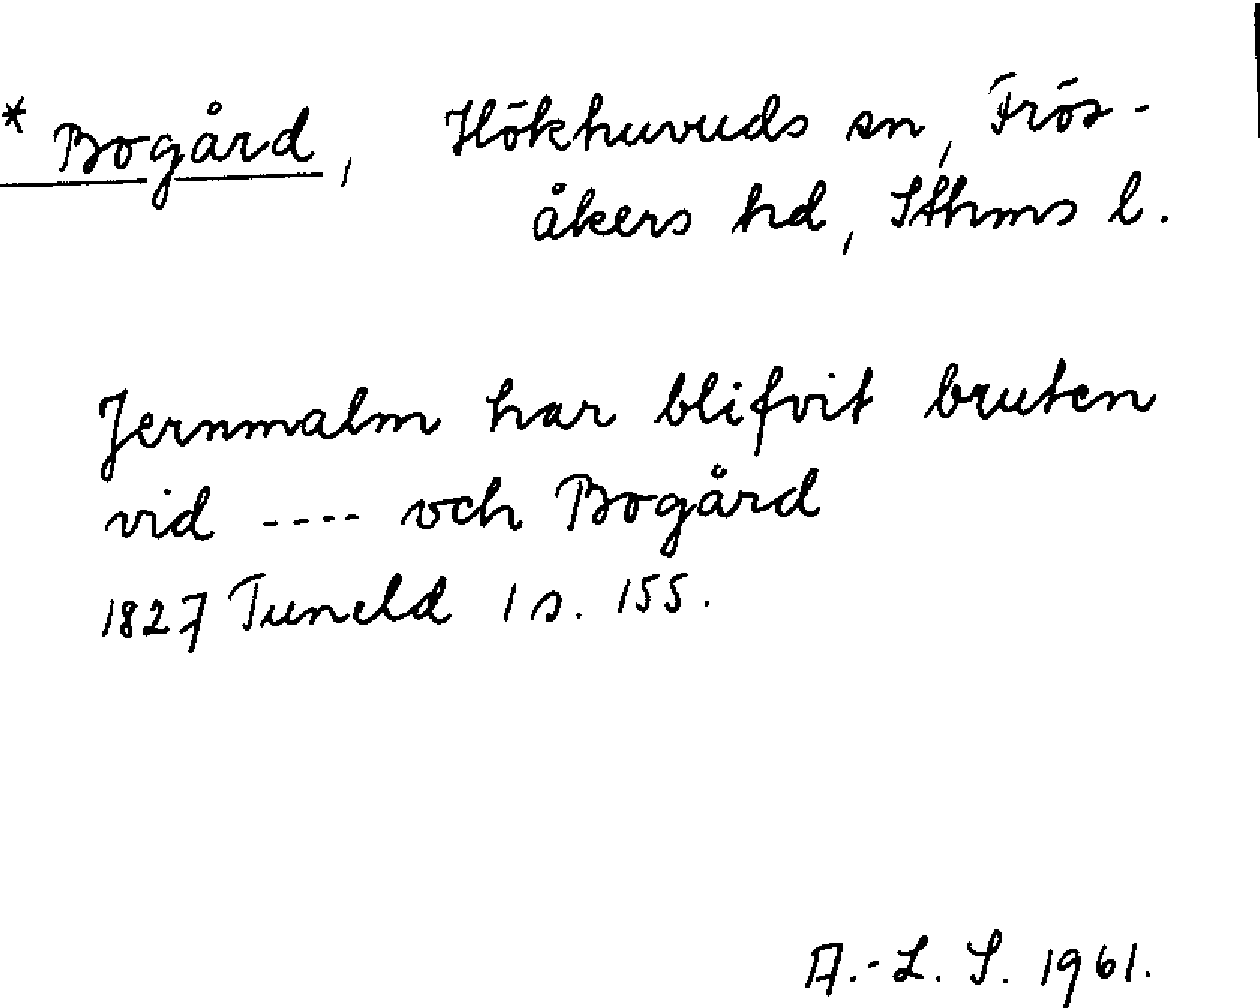 * Bogård, Hökhuvuds sn, Frös-
åkers hd, Sthms l.
Jernmalm har blifvit bruten
vid ---- och Bogård
1827 Tuneld 1 s. 155.
A.-L. S. 1961.